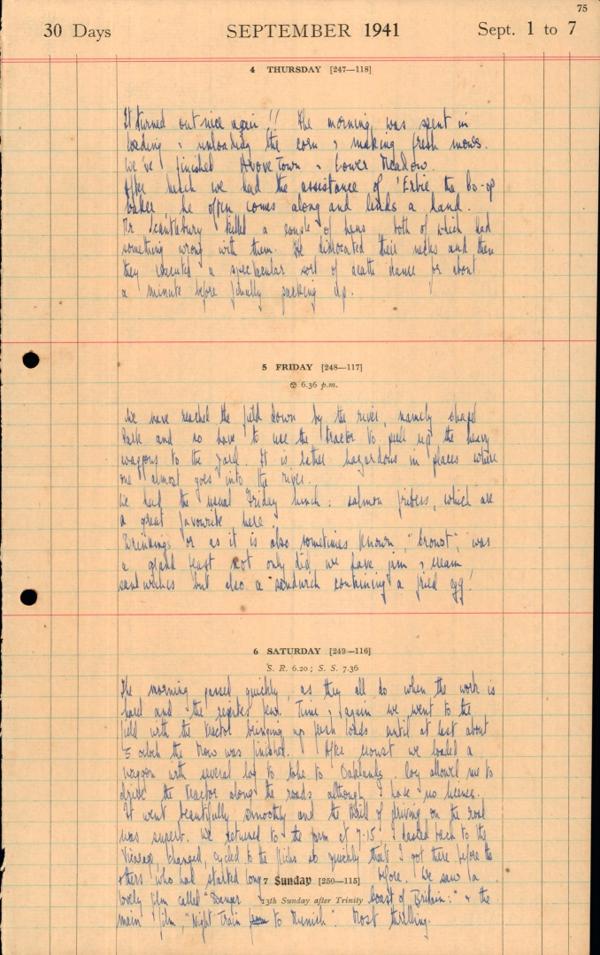 75
30 Days SEPTEMBER 1941 Sept. 1 to 7
4 THURSDAY [247—118]
It turned out nice again!! The morning was spent in
loading & unloading the corn & making fresh mows.
We've finished Above Town & Lower Meadow.
After lunch we had the assistance of 'Erbie, the Co-op
baker, he often comes along and lends a hand.
Mr killed a couple of hens both of which had
something wrong with them. He dislocated their necks and then
they executed a spectacular sort of death dance for about
a minute before finally packing up.
5 FRIDAY [248—117]
6.36 p.m.
We have reached the field down by the river, namely
Park and so have to use the tractor to pull up the heavy
waggons to the yard. It is rather hazardous in places where
one almost goes into the river.
We had the usual Friday lunch: salmon fritters, which are
a great favourite here.
or as it is also sometimes known " ", was
a grand feast not only did we have jam & cream
sandwiches but also a sandwich containing a fried egg!
6 SATURDAY [249—116]
S. R. 6.20; S. S. 7.36
The morning passed quickly, as they all do when the work is
hard and the few. Time & again we went to the
field with the tractor bringing up fresh loads until at last about
5 o'clock the mow was finished. After we loaded a
waggon with several to take to Oaklands. allowed me to
drive the tractor along the roads although I have no licence.
It went beautifully smoothly and the thrill of driving on the road
was superb. We returned to the farm at 7-15. I dashed back to the
Vicarage, changed, cycled to the flicks so quickly that I got there before the
others who had started long before. We saw a
7 Sunday [250—115]
lovely film called " Coast of Britain:" & the
13th Sunday after Trinity
main film "Night Train to Munich". Most thrilling.